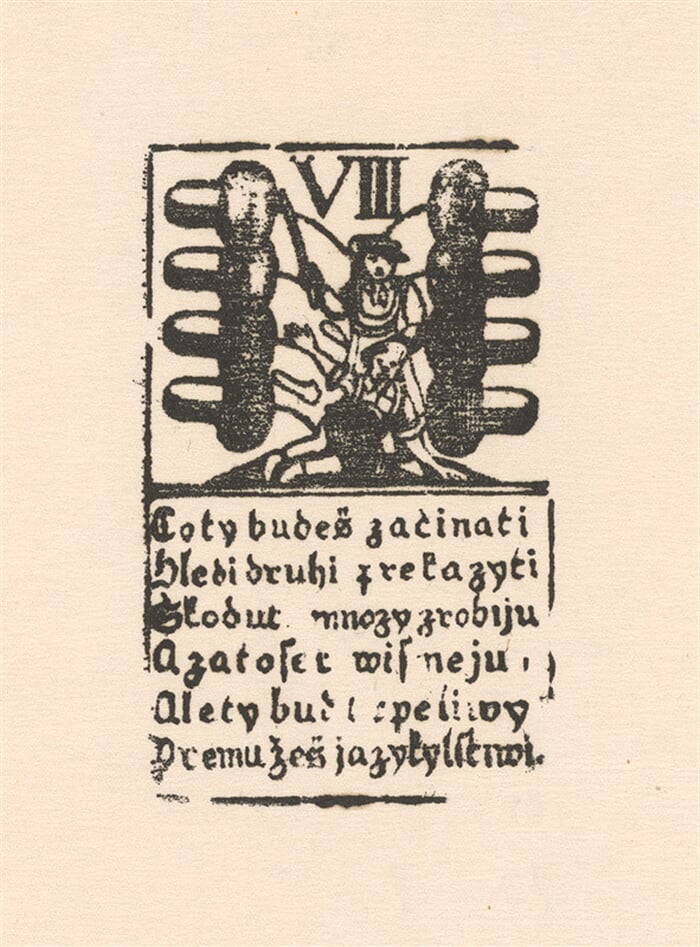 VIII
Coty budeš začinati
hledi druhi prekazyti
Skodut mnozy zrobiju
A zato se wisneju,
Alety bud
Premužeš jazyky